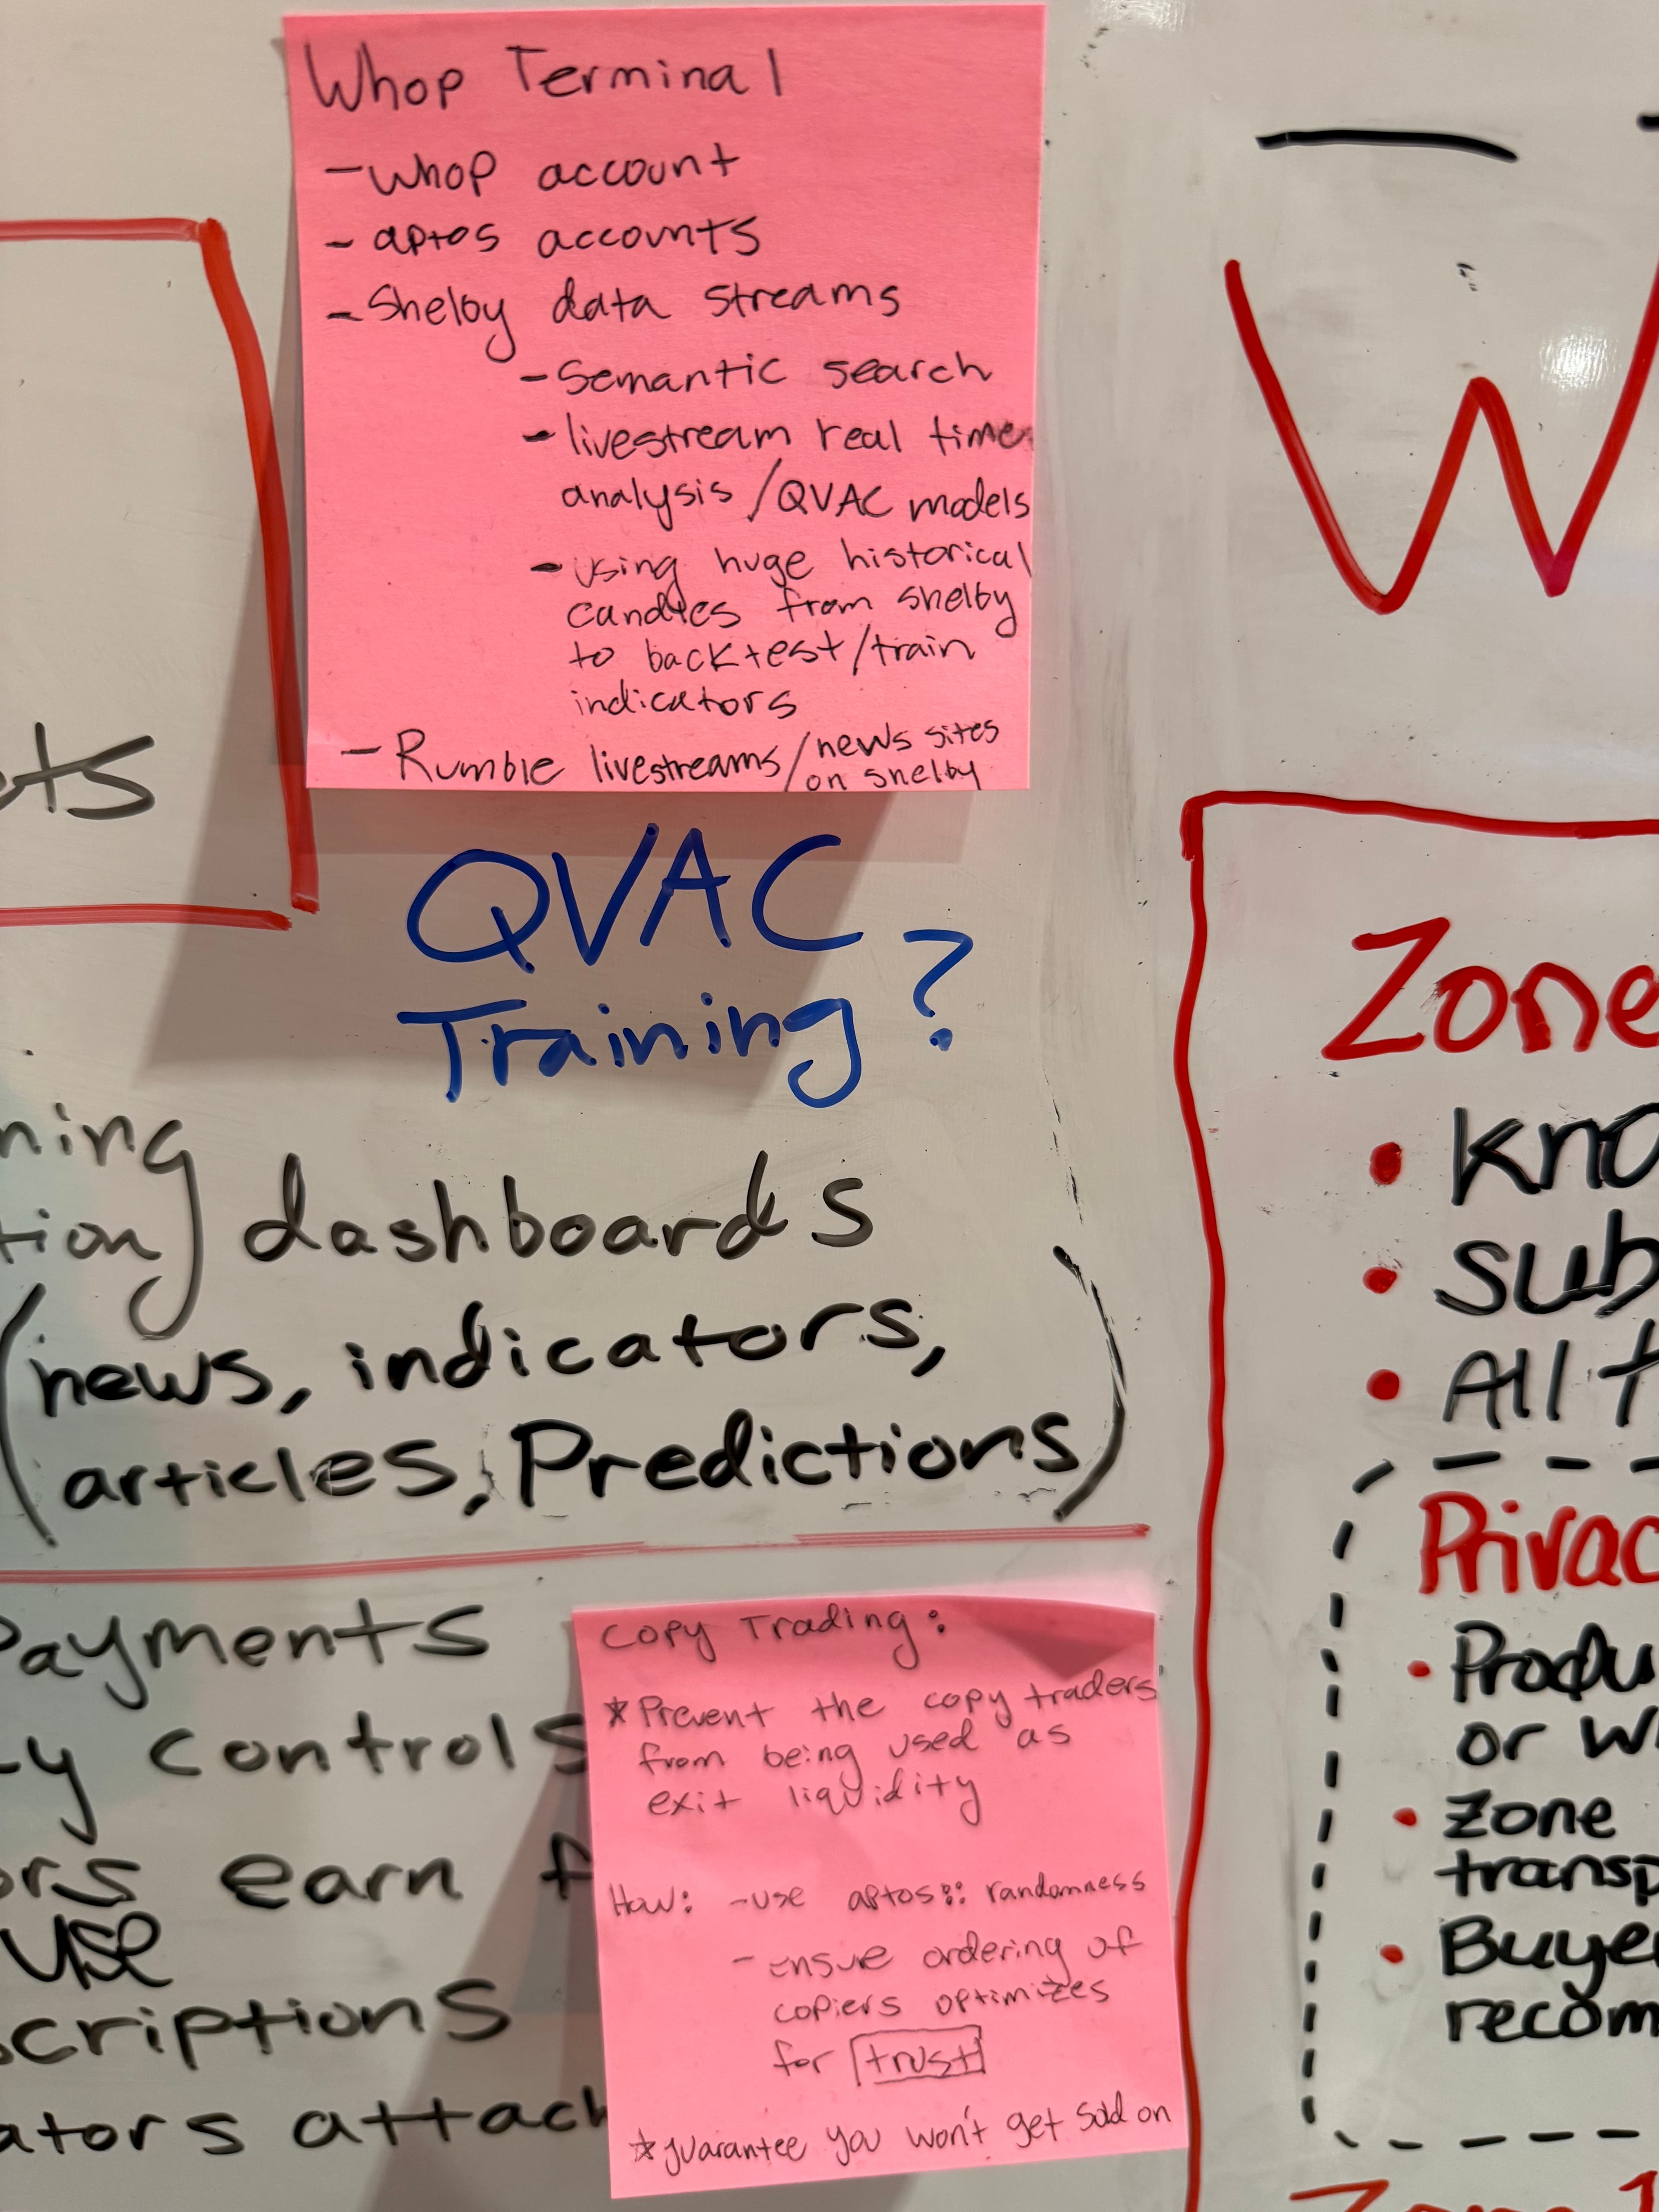 Whop Terminal
- Whop account
- aptos accounts
- Shelby data streams
- Semantic search
- livestream real time
analysis/QVAC models
- using huge historical
candles from shelby
to backtest/train
indicators
- Rumble livestreams/news sites
on shelby
QVAC
Training?
dashboards
(news, indicators,
articles, Predictions)
Payments
controls
earn
use
attach
Copy Trading:
* Prevent the copy traders
from being used as
exit liquidity
How: - use aptos:: randomness
- ensure ordering of
copiers optimizes
for trust
* guarantee you won't get sold on
W
Zone
• All
• Zone